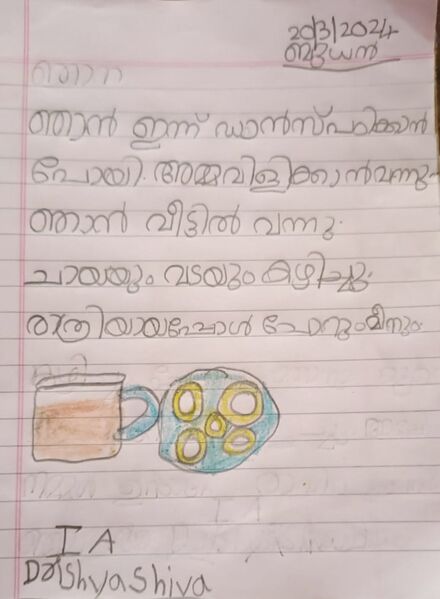 20/3/2024
ബുധൻ
ഞാൻ ഇന്ന് ഡാൻസ്പഠിക്കാൻ
പോയി. അമ്മവിളിക്കാൻവന്നു.
ഞാൻ വീട്ടിൽ വന്നു.
ചായയും വടയും കഴിച്ചു.
രാത്രിയായപ്പോൾ ചോറുംമീനും
I A
DrishyaShiva